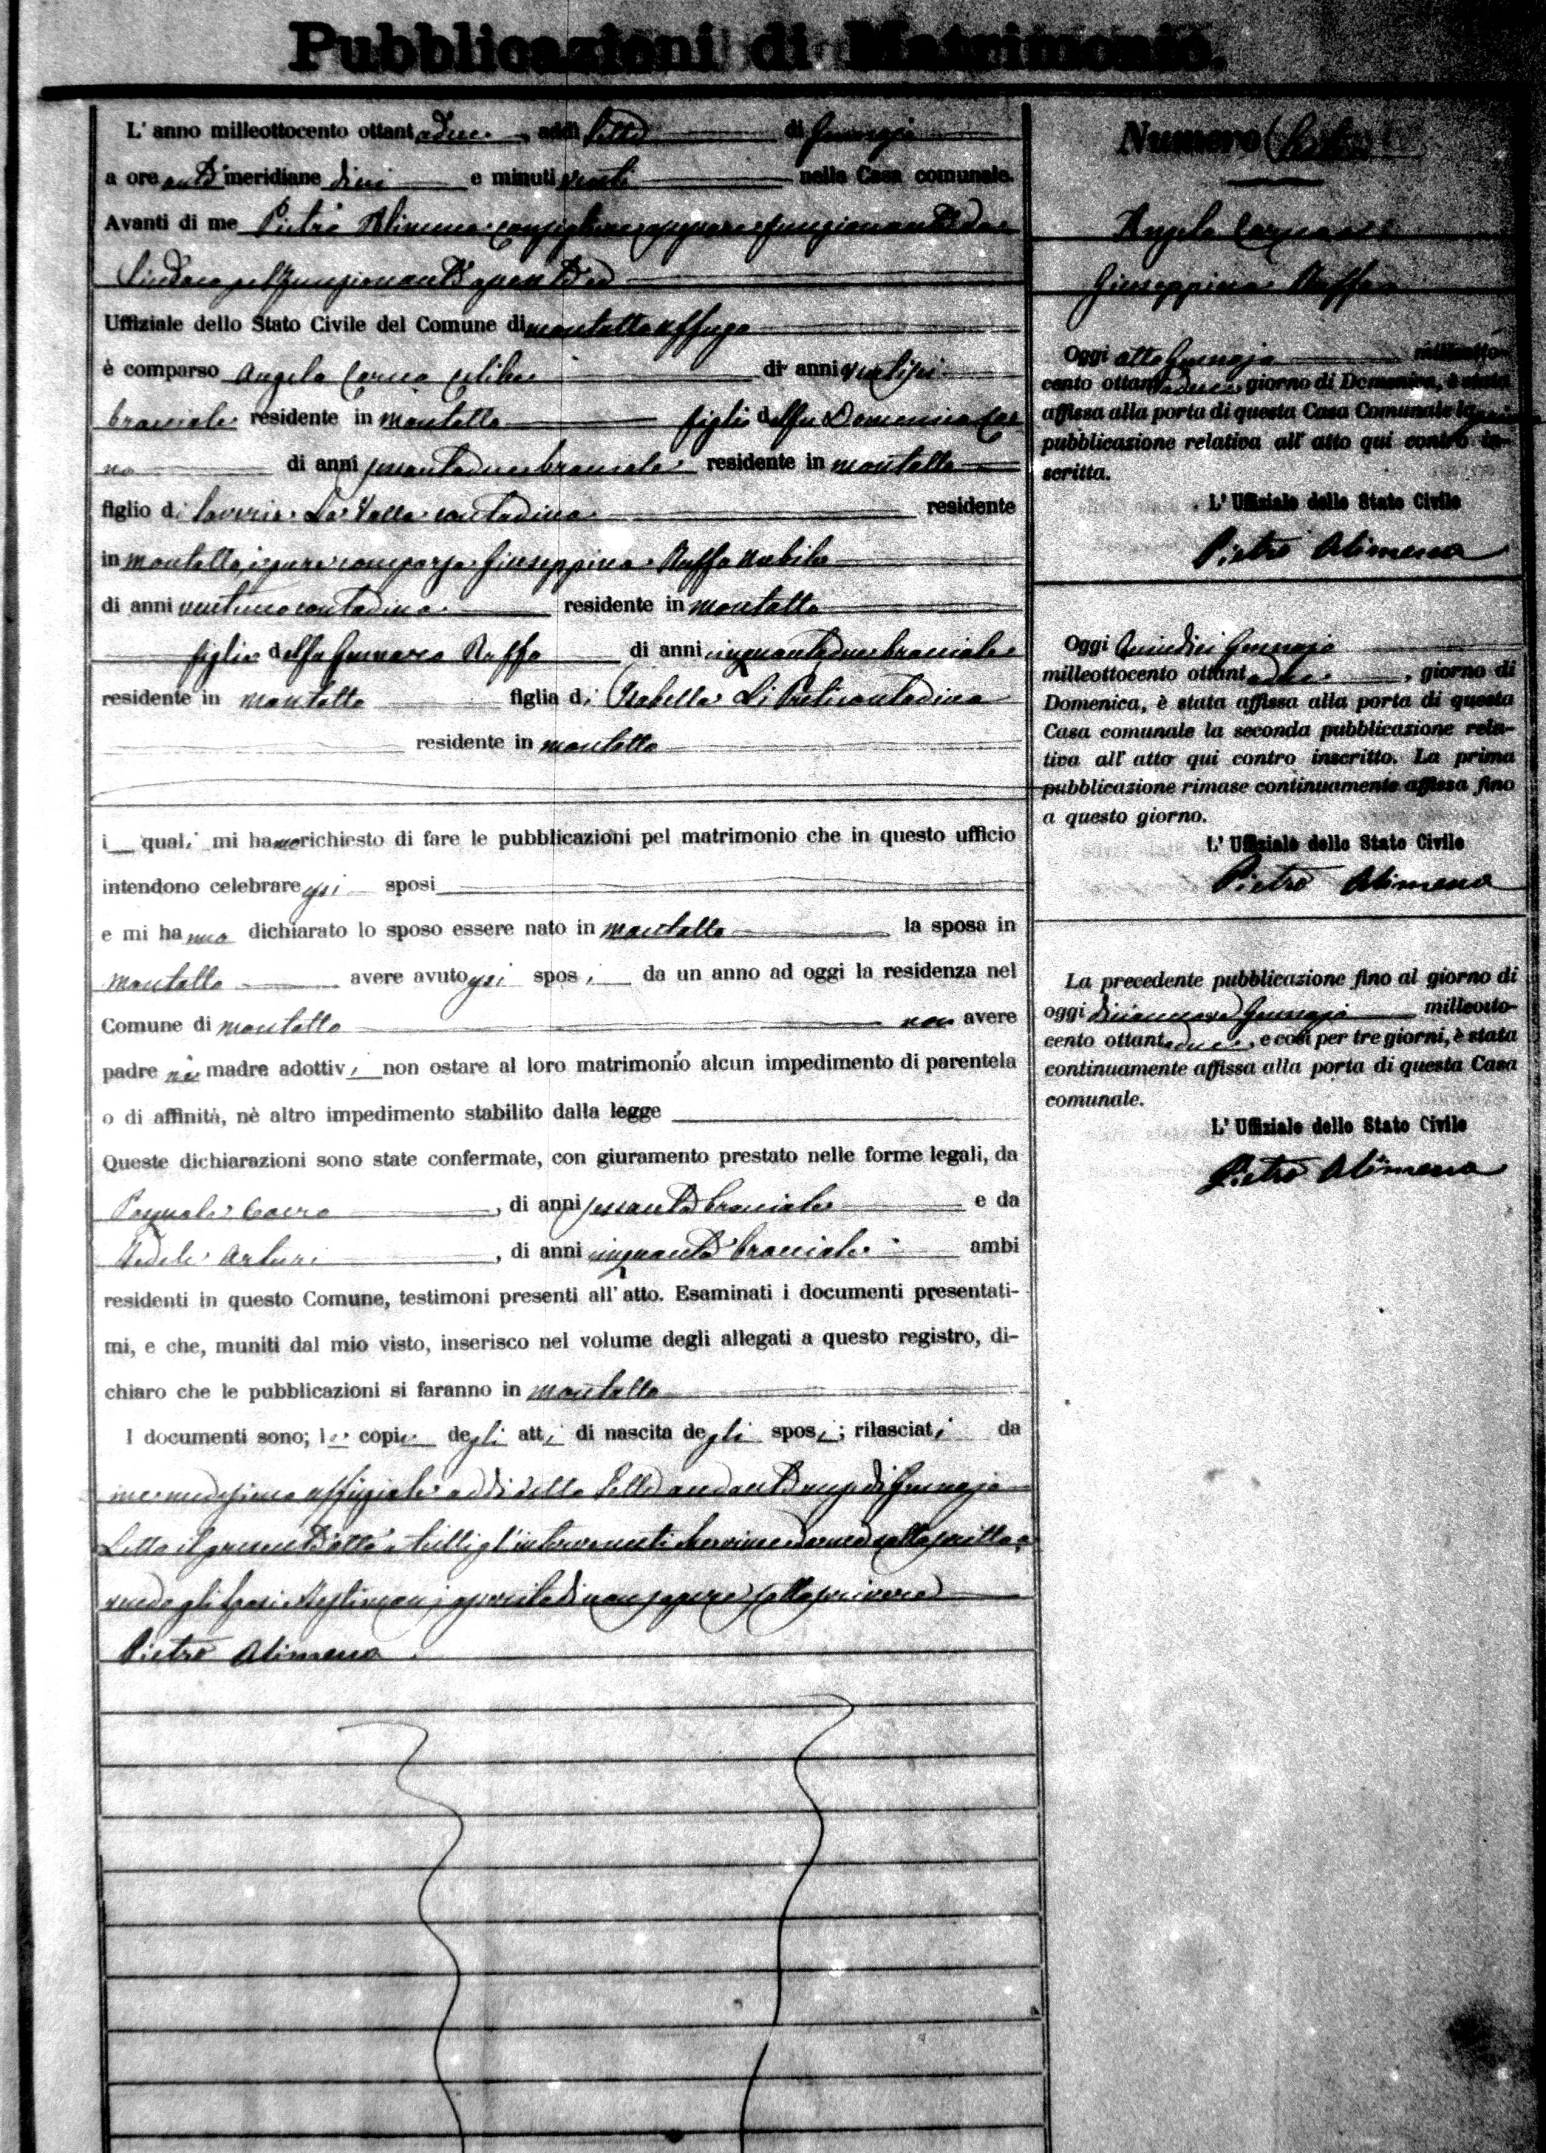 Pubblicazioni di Matrimonio.
L' anno milleottocento ottantadue, addì sette di Gennajo
a ore anti meridiane dieci e minuti venti nella Casa comunale.
Avanti di me Pietro Alimena Consigliere funzionante da
Sindaco
Uffiziale dello Stato Civile del Comune di Montalto Uffugo
è comparso Angelo celibe di anni ventisei
bracciale residente in Montalto figlio del fu Domenico
di anni bracciale residente in Montalto
figlio di Saveria La Valle contadina residente
in Montalto, è pure comparsa Giuseppina Ruffo nubile
di anni ventuno contadina residente in Montalto
figlia del fu Gennaro Ruffo di anni cinquantadue bracciale
residente in Montalto figlia di Isabella Li Preti contadina
residente in Montalto
i quali mi hanno richiesto di fare le pubblicazioni pel matrimonio che in questo ufficio
intendono celebrare essi sposi
e mi hanno dichiarato lo sposo essere nato in Montalto la sposa in
Montalto avere avuto essi sposi da un anno ad oggi la residenza nel
Comune di Montalto non avere
padre nè madre adottivi non ostare al loro matrimonio alcun impedimento di parentela
o di affinità, nè altro impedimento stabilito dalla legge
Queste dichiarazioni sono state confermate, con giuramento prestato nelle forme legali, da
Pasquale, di anni sessanta bracciale e da
Fedele Arturi, di anni cinquanta bracciale ambi
residenti in questo Comune, testimoni presenti all' atto. Esaminati i documenti presentati-
mi, e che, muniti dal mio visto, inserisco nel volume degli allegati a questo registro, di-
chiaro che le pubblicazioni si faranno in Montalto
I documenti sono; le copie degli atti di nascita degli sposi; rilasciati da
me medesimo uffiziale addì sette andante mese di Gennajo
Letto il presente atto a tutti gl'intervenuti
degli sposi e testimonj di non sapere sottoscrivere
Pietro Alimena
Numero
Angelo
Giuseppina Ruffo
Oggi otto Gennajo milleotto-
cento ottantadue, giorno di Domenica, è stata
affissa alla porta di questa Casa Comunale la prima
pubblicazione relativa all' atto qui contro in-
scritta.
L' Uffiziale dello Stato Civile
Pietro Alimena
Oggi Quindici Gennajo
milleottocento ottantadue, giorno di
Domenica, è stata affissa alla porta di questa
Casa comunale la seconda pubblicazione rela-
tiva all' atto qui contro inscritto. La prima
pubblicazione rimase continuamente affissa fino
a questo giorno.
L' Uffiziale dello Stato Civile
Pietro Alimena
La precedente pubblicazione fino al giorno di
oggi diciannove Gennajo milleotto-
cento ottantadue, e così per tre giorni, è stata
continuamente affissa alla porta di questa Casa
comunale.
L' Uffiziale dello Stato Civile
Pietro Alimena